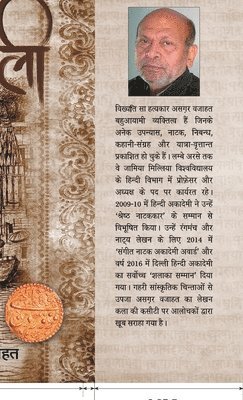 ली
विख्यात सा हत्यकार असग़र वजाहत
बहुआयामी व्यक्तित्व हैं जिनके
अनेक उपन्यास, नाटक, निबन्ध,
कहानी-संग्रह और यात्रा-वृत्तान्त
प्रकाशित हो चुके हैं। लम्बे अरसे तक
वे जामिया मिल्लिया विश्वविद्यालय
के हिन्दी विभाग में प्रोफ़ेसर और
अध्यक्ष के पद पर कार्यरत रहे।
2009-10 में हिन्दी अकादमी ने उन्हें
'श्रेष्ठ नाटककार' के सम्मान से
विभूषित किया। उन्हें रंगमंच और
नाट्य लेखन के लिए 2014 में
'संगीत नाटक अकादमी अवार्ड' और
वर्ष 2016 में दिल्ली हिन्दी अकादमी
का सर्वोच्च 'शलाका सम्मान' दिया
गया। गहरी सांस्कृतिक चिन्ताओं से
उपजा असग़र वजाहत का लेखन
कला की कसौटी पर आलोचकों द्वारा
खूब सराहा गया है।
हत